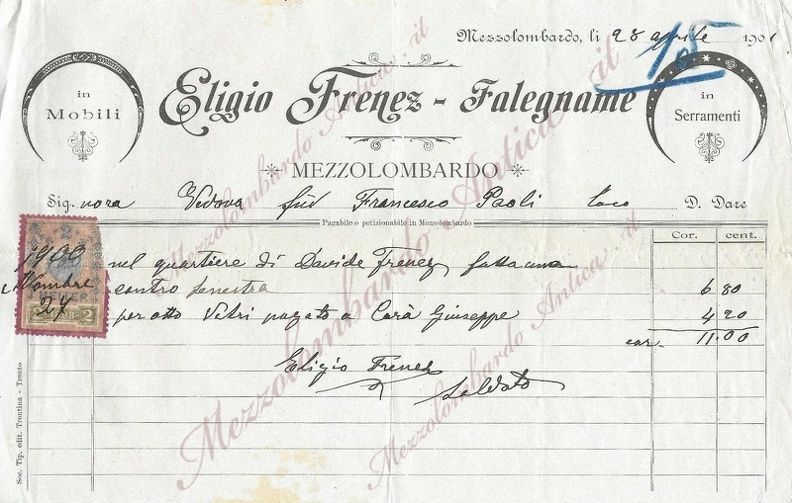 Mezzolombardo, li 28 aprile 1901
15
in Mobili
Eligio Frenez - Falegname
in Serramenti
MEZZOLOMBARDO
Sig.nora Vedova fûd Francesco Paoli Loco D. Dare
Pagabile e petizionabile in Mezzolombardo
Cor. cent.
1900 nel quartiere di Davide Frenez fatta una
Novembre contro fenestra 6 80
24 per otto Vetri pagato a Carà Giuseppe 4 20
cor. 11.00
Eligio Frenez
Saldato
2
2
Soc. Tip. edit. Trentina - Trento
Mezzolombardo Antica.it
Mezzolombardo Antica.it
Mezzolombardo Antica.it